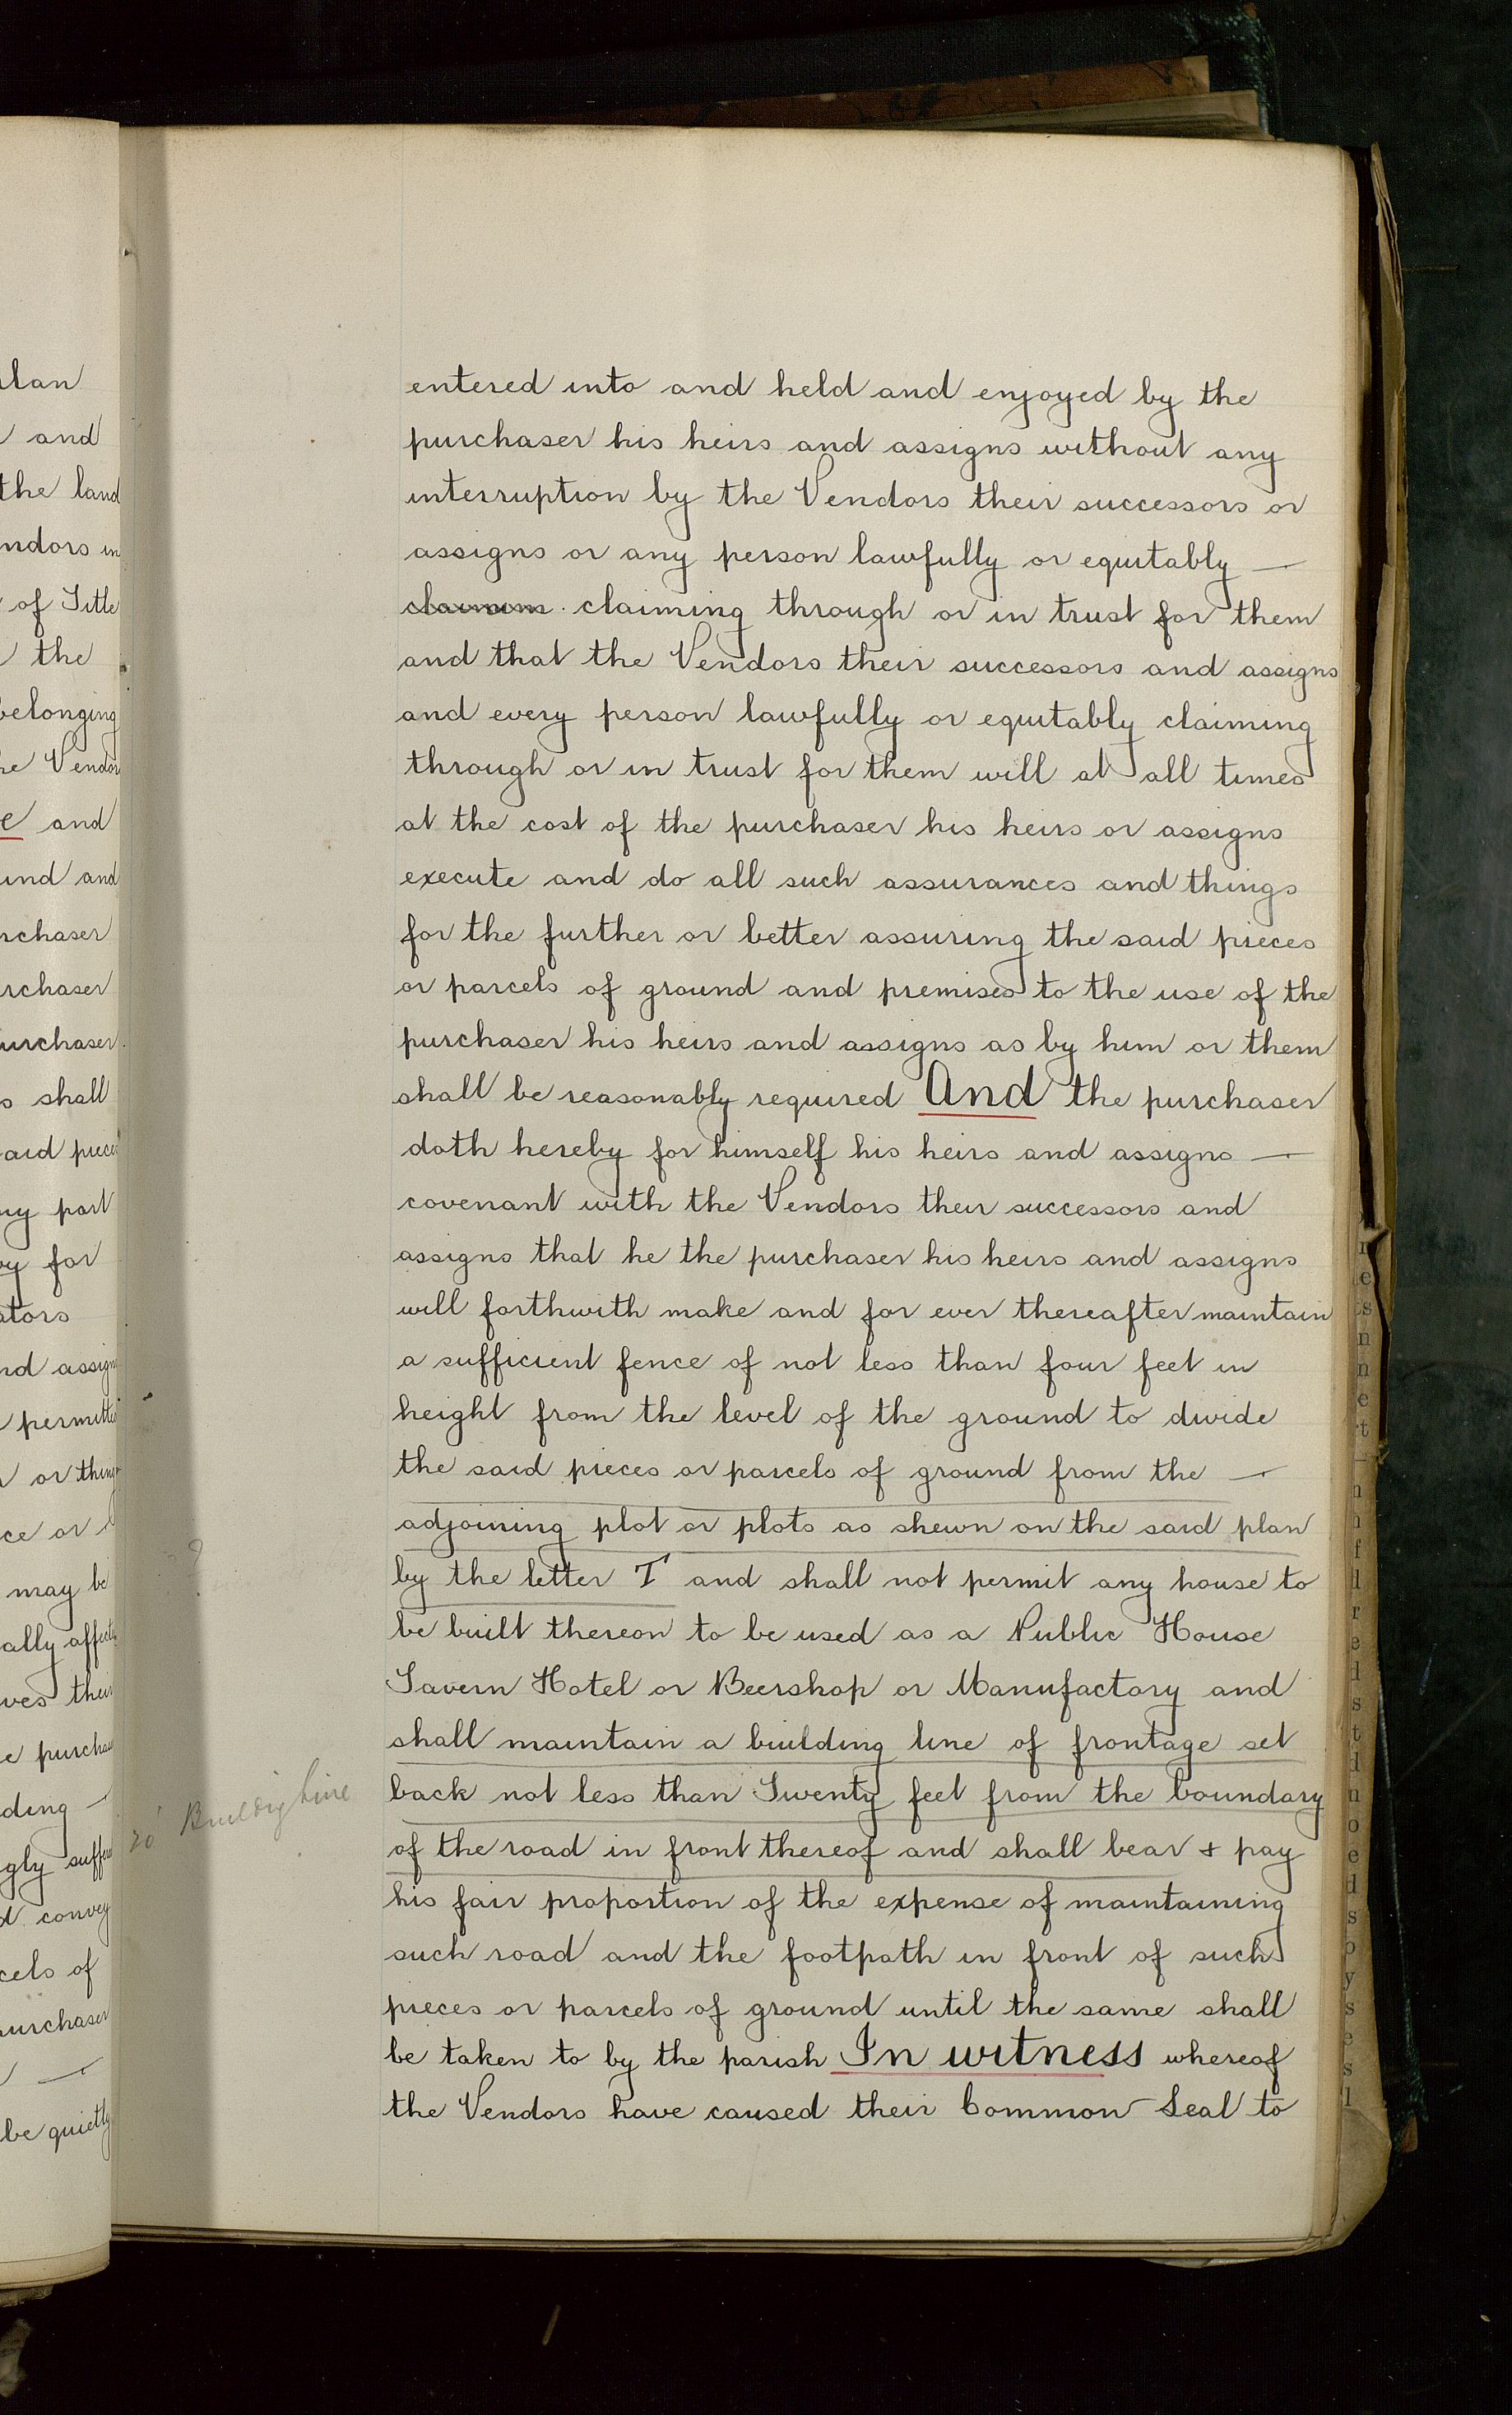 lan
and
the land
ndors in
of Title
the
belonging
he Vendor
e and
und and
rchaser
rchaser
urchaser
s shall
aid pieces
ny part
by for
ators
nd assigns
permitted
or things
ce or
may be
ally affect
ves their
e purchas
ding —
gly suffer
d convey
cels of
urchaser
—
be quietly
entered into and held and enjoyed by the
purchaser his heirs and assigns without any
interruption by the Vendors their successors or
assigns or any person lawfully or equitably —
claimim claiming through or in trust for them
and that the Vendors their successors and assigns
and every person lawfully or equitably claiming
through or in trust for them will at all times
at the cost of the purchaser his heirs or assigns
execute and do all such assurances and things
for the further or better assuring the said pieces
or parcels of ground and premises to the use of the
purchaser his heirs and assigns as by him or them
shall be reasonably required And the purchaser
doth hereby for himself his heirs and assigns —
covenant with the Vendors their successors and
assigns that he the purchaser his heirs and assigns
will forthwith make and for ever thereafter maintain
a sufficient fence of not less than four feet in
height from the level of the ground to divide
the said pieces or parcels of ground from the —
adjoining plot or plots as shewn on the said plan
by the letter T and shall not permit any house to
be built thereon to be used as a Public House
Tavern Hotel or Beershop or Manufactory and
shall maintain a building line of frontage set
20' Building Line
back not less than Twenty feet from the boundary
of the road in front thereof and shall bear & pay
his fair proportion of the expense of maintaining
such road and the footpath in front of such
pieces or parcels of ground until the same shall
be taken to by the parish In witness whereof
the Vendors have caused their Common Seal to